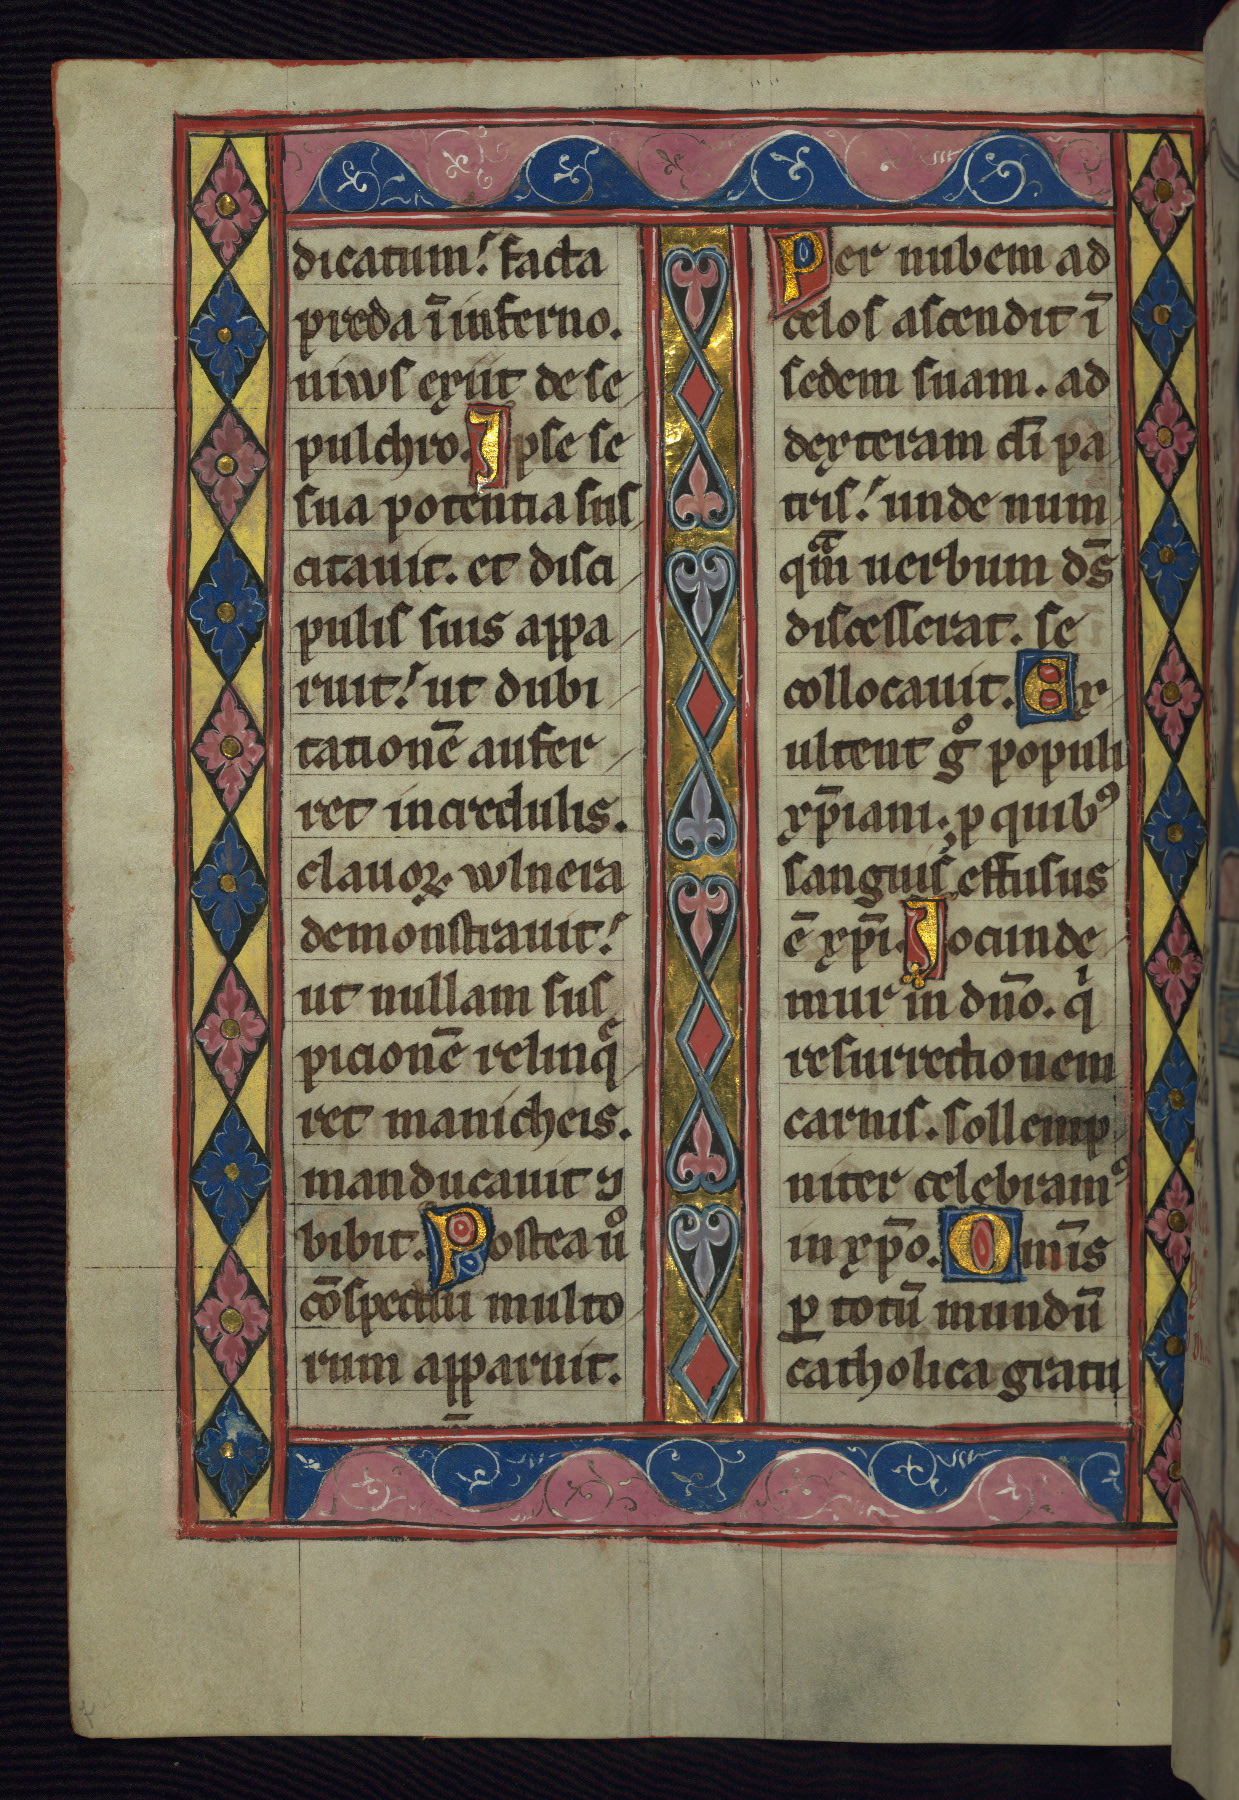 dicatum. facta
preda ī inferno.
uiuus exiit de se
pulchro. Ipse se
sua potentia sus
citauit. et disci
pulis suis appa
ruit. ut dubi
tationē aufer
ret incredulis.
clauoꝝ wlnera
demonstrauit.
ut nullam sus
picionē relinq̄
ret manicheis.
manducauit ⁊
bibit. Postea ůo
cōspectui multo
rum apparuit.
Per nubem ad
celos ascendit ī
sedem suam. ad
dexteram dī pa
tris. unde num
qͣm uerbum ds̄
discesserat. se
collocauit. Ex
ultent gͦ populi
xp̄iani. p quibꝰ
sanguis effusus
ē xp̄i. Iocunde
mur in dn̄o. qͥ
resurrectionem
carnis. sollemp
niter celebramꝰ
in xp̄o. Omīs
ꝑ totū mundū
catholica gratu